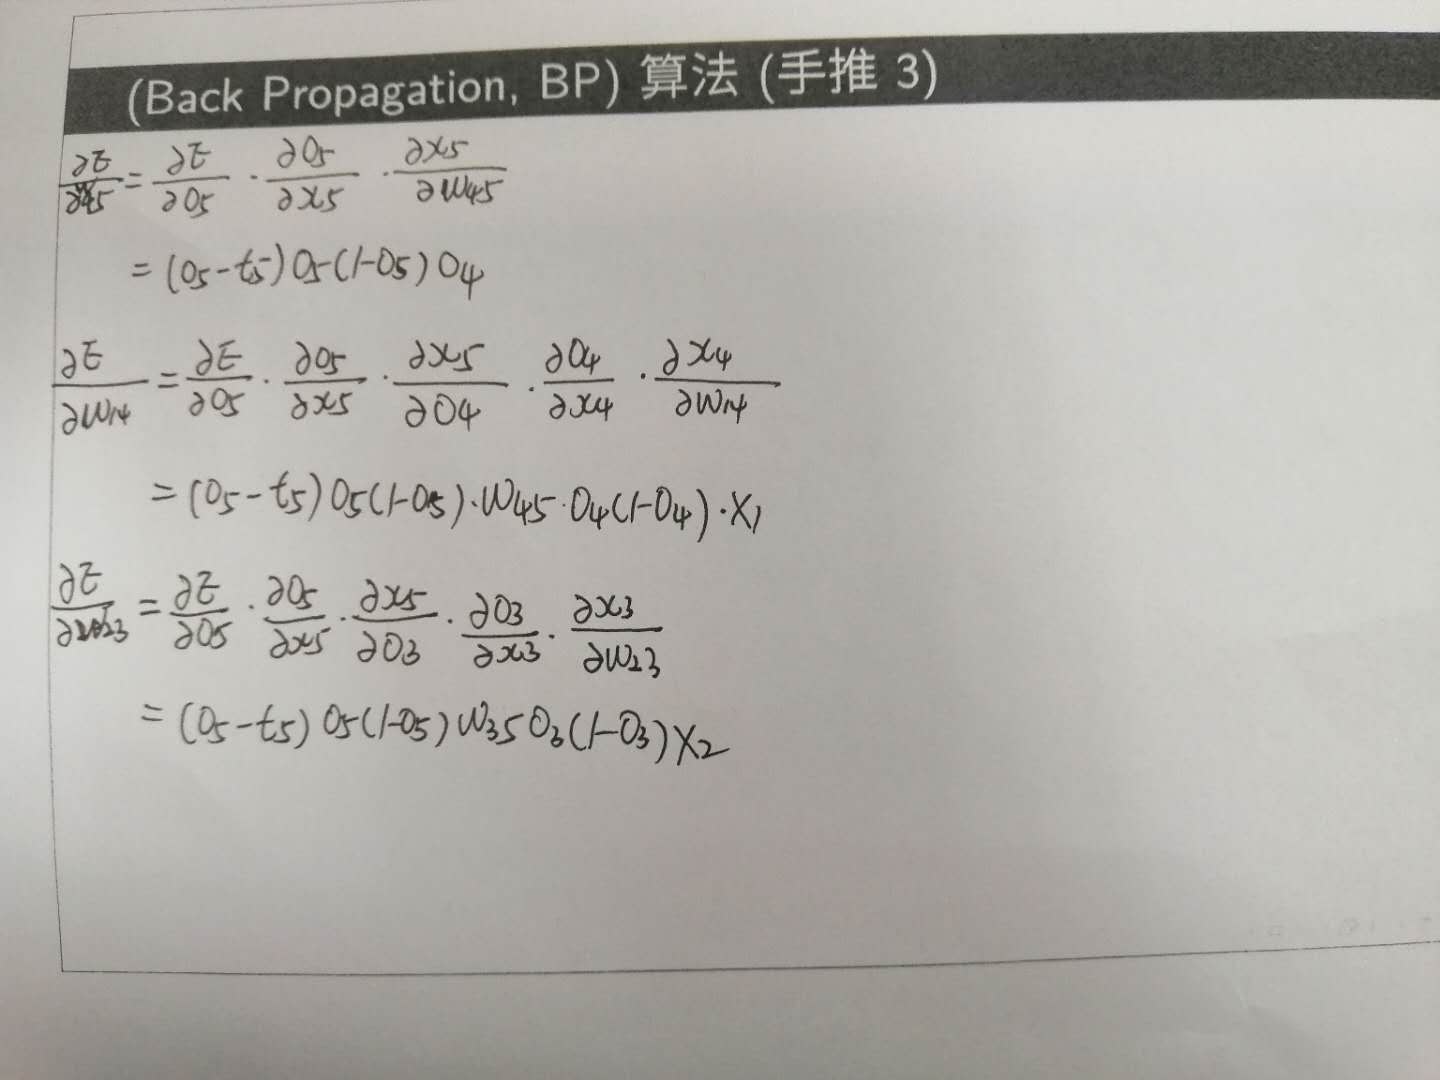 (Back Propagation, BP) 算法 (手推 3)
∂E/∂w45 = ∂E/∂O5 · ∂O5/∂x5 · ∂x5/∂w45
= (O5-t5) O5(1-O5) O4
∂E/∂w14 = ∂E/∂O5 · ∂O5/∂x5 · ∂x5/∂O4 · ∂O4/∂x4 · ∂x4/∂w14
= (O5-t5) O5(1-O5)·w45·O4(1-O4)·X1
∂E/∂w23 = ∂E/∂O5 · ∂O5/∂x5 · ∂x5/∂O3 · ∂O3/∂x3 · ∂x3/∂w23
= (O5-t5) O5(1-O5) w35 O3(1-O3) X2